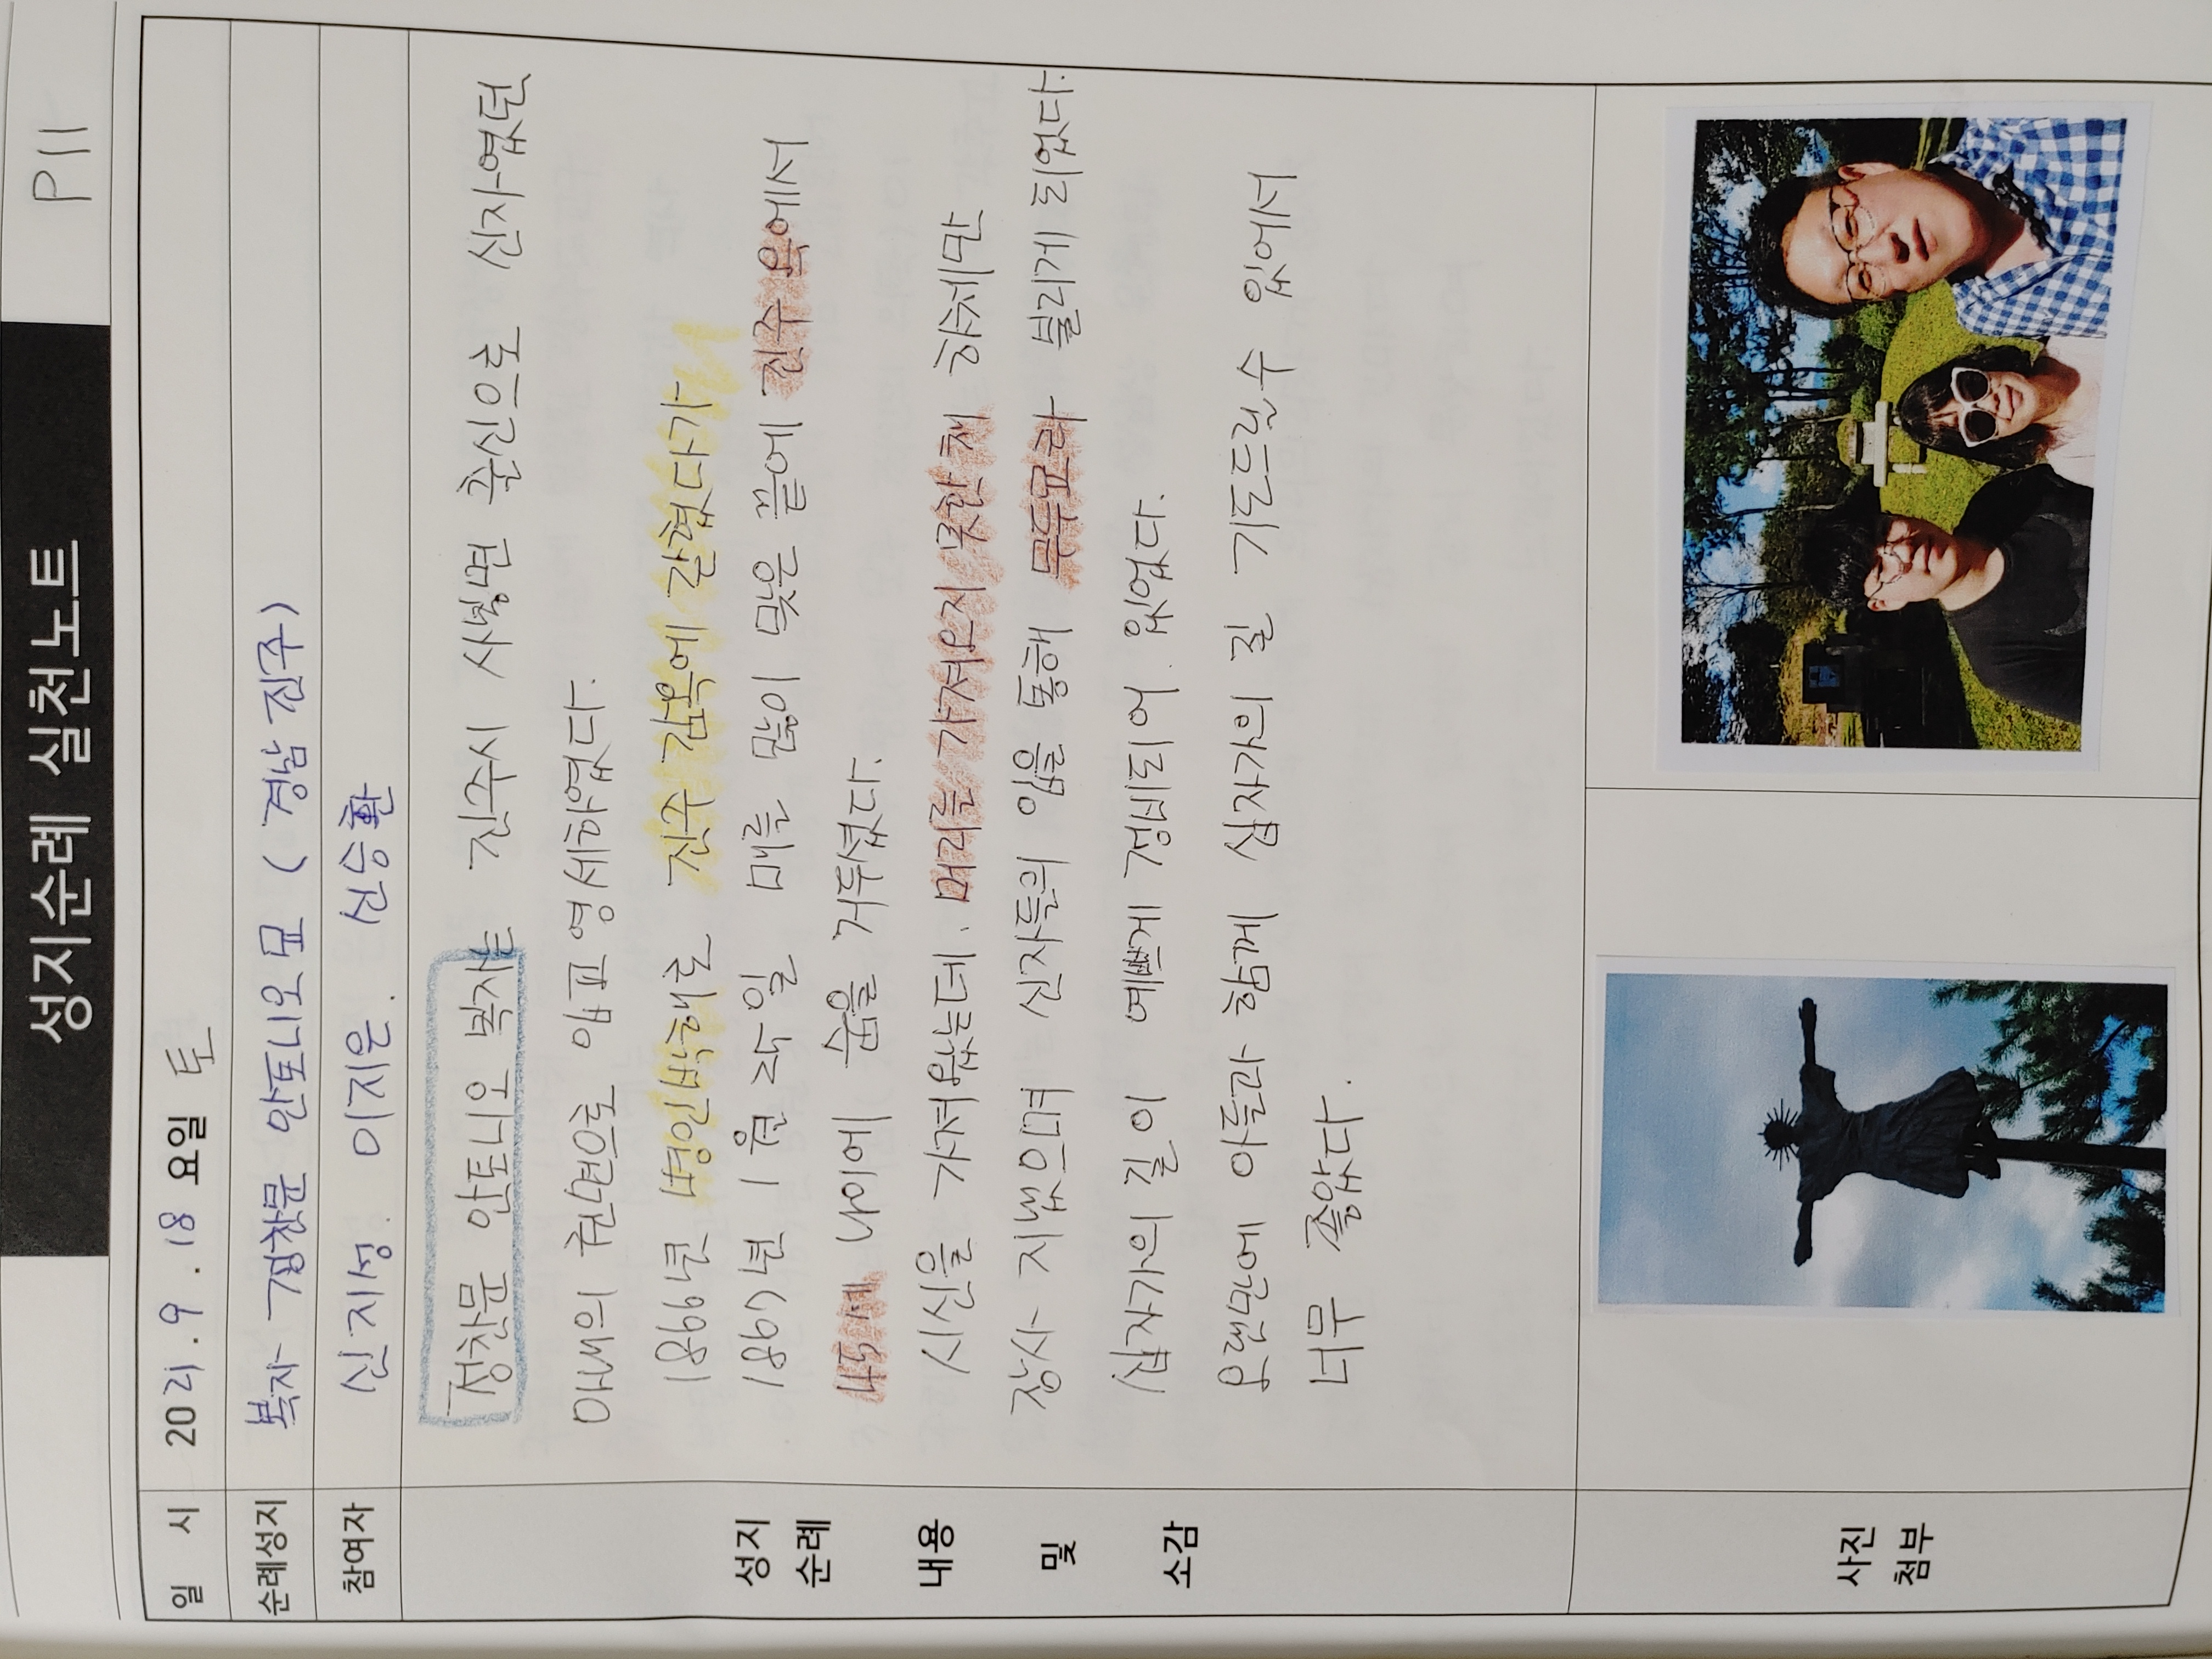 성지순례 실천노트 P11
일 시 2021.9.18 요일 토
순례성지 복자 정찬문 안토니오묘 (경남 진주)
참여자 신지성. 이지은. 신승환
정찬문 안토니오 복자는 진주시 사봉면 출신으로 신자였던
아내의 권면으로 입교 영세하였다.
1866년 병인박해로 진주 감옥에 갇혔다가
1867년 1월 25일 매를 많이 맞은 끝에 진주 옥에서
45세 나이에 숨을 거두셨다.
시신을 가져왔는데. 머리를 가져오지 못한 채 하체만
장사 지냈으며 신자들의 입을 통해 무두묘라 불리게 되었다.
십자가의 길이 예쁘게 정비되어 있었다.
오랜만에 아들과 함께 십자가의 길 기도드릴수 있에서
너무 좋았다.
성지
순례
내용
및
소감
사진
첨부